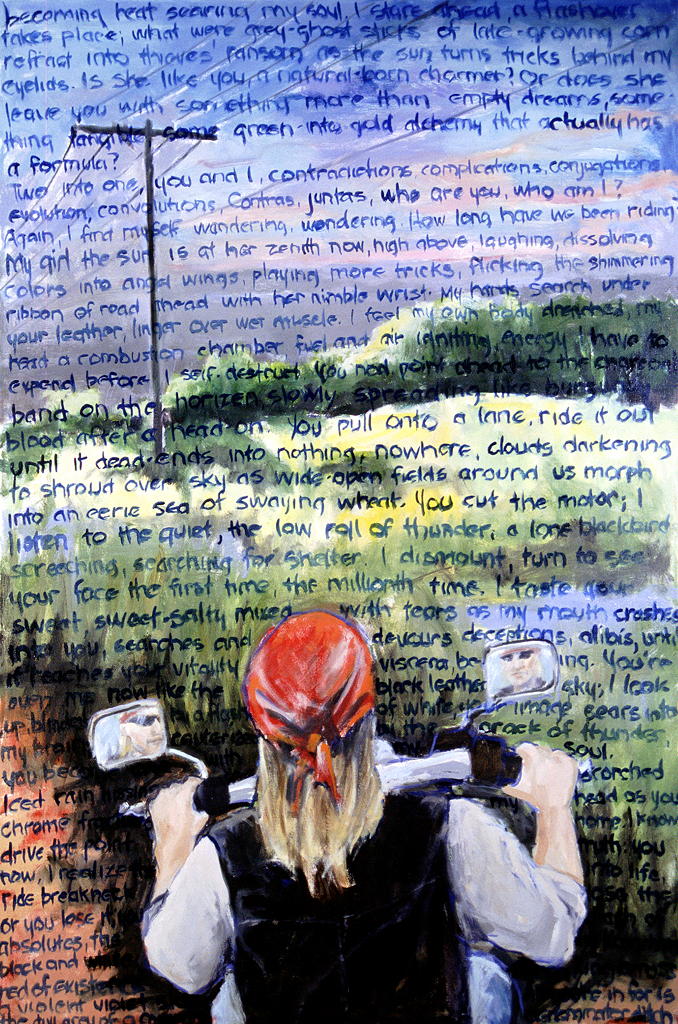 becoming heat searing my soul, I stare ahead, a flashover
takes place; what were grey-ghost stalks of late-growing corn
refract into thieves' ransom as the sun turns tricks behind my
eyelids. Is she like you a natural-born charmer? Or does she
leave you with something more than empty dreams, some-
thing tangible some green-into gold alchemy that actually has
a formula?
Two into one, you and I, contradictions, complications, conjugations
evolution, convolutions, Contras, juntas, who are you, who am I?
Again, I find myself wandering, wondering. How long have we been riding?
My girl the sun is at her zenith now, high above, laughing, dissolving
colors into angel wings, playing more tricks, flicking the shimmering
ribbon of road ahead with her nimble wrist. My hands search under
your leather, linger over wet muscle. I feel my own body drenched, my
head a combustion chamber fuel and air igniting, energy I have to
expend before self-destruct. You nod point ahead to the charcoal
band on the horizen slowly spreading like
blood after a head-on. You pull onto a lane, ride it out
until it dead-ends into nothing, nowhere, clouds darkening
to shroud over sky as wide-open fields around us morph
into an eerie sea of swaying wheat. You cut the motor; I
listen to the quiet, the low roll of thunder; a lone blackbird
screeching, searching for shelter. I dismount, turn to see
your face the first time, the millionth time. I taste your
sweat sweet-salty mixed with tears as my mouth crashes
into you, searches and devours deceptions, alibis, until
it reaches your vitality viscera be ing. You're
over me now like the black leather sky; I look
up blinded by a of white your image sears into
my brain with the crack of thunder
you beco soul.
Iced rain scorched
chrome my head as you
drive the point home. I know
now, I realize truth: you
ride breakneck life
or you lose it the
absolutes, the
black and white
red of existence 're in for is
violent violet
the dull grey of a ditch